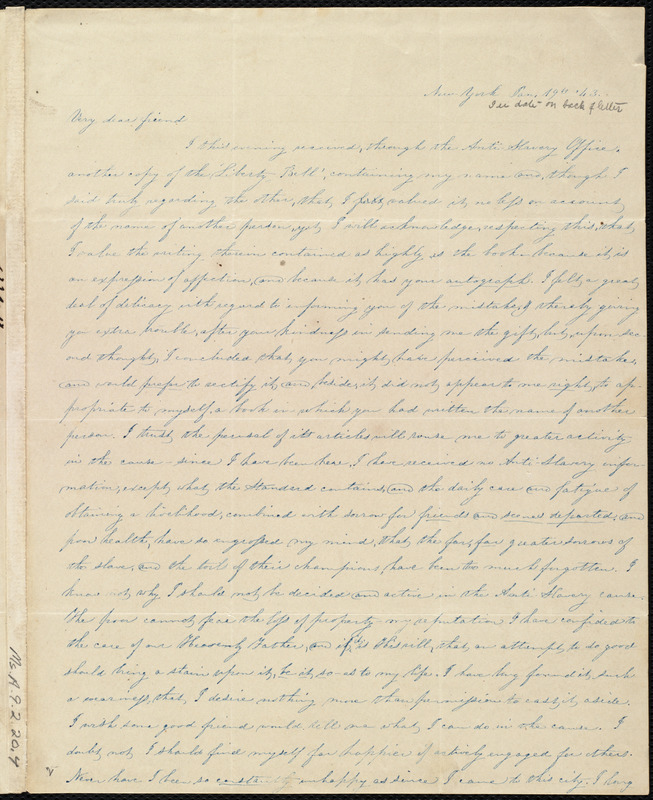 New York Jan. 19th '43.
See date on back of letter
Very dear friend
I this evening received, through the Anti Slavery Office,
another copy of the 'Liberty Bell', containing my name and, though I
said truly regarding the other, that, I valued it no less on account
of the name of another person, yet, I will acknowledge, respecting this, that
I value the writing therein contained as highly as the book because it is
an expression of affection, and because it has your autograph. I felt a great
deal of delicacy with regard to informing you of the mistake, & thereby giving
you extra trouble, after your kindness in sending me the gift, but, upon sec
ond thought, I concluded that, you might, have perceived the mistake,
and would prefer to rectify it, and beside, it did not appear to me right, to ap
propriate to myself, a book in which you had written the name of another
person. I trust, the perusal of its articles will rouse me to greater activity
in the cause - since I have been here, I have received no Anti Slavery infor
mation, except what the Standard contains, and the daily care and fatigue of
obtaining a livelihood, combined with sorrow for friends and scenes departed, and
poor health, have so engrossed my mind, that the far, far greater sorrows of
the slave, and the toil of their champions, have been too much forgotten. I
know not why I should not be decided and active in the Anti Slavery cause.
The poor cannot fear the loss of property my reputation I have confided to
the care of our Heavenly Father, and if it is His will, that an attempt to do good
should bring a stain upon it, be it so - as to my life, I have long found it, such
a weariness, that, I desire nothing more than permission to cast it aside.
I wish some good friend would tell me what I can do in the cause. I
doubt not I should find myself far happier if actively engaged for others.
Never have I been so constantly unhappy as since I came to this city. I long
Ms. A. 9. 2. 20. 4